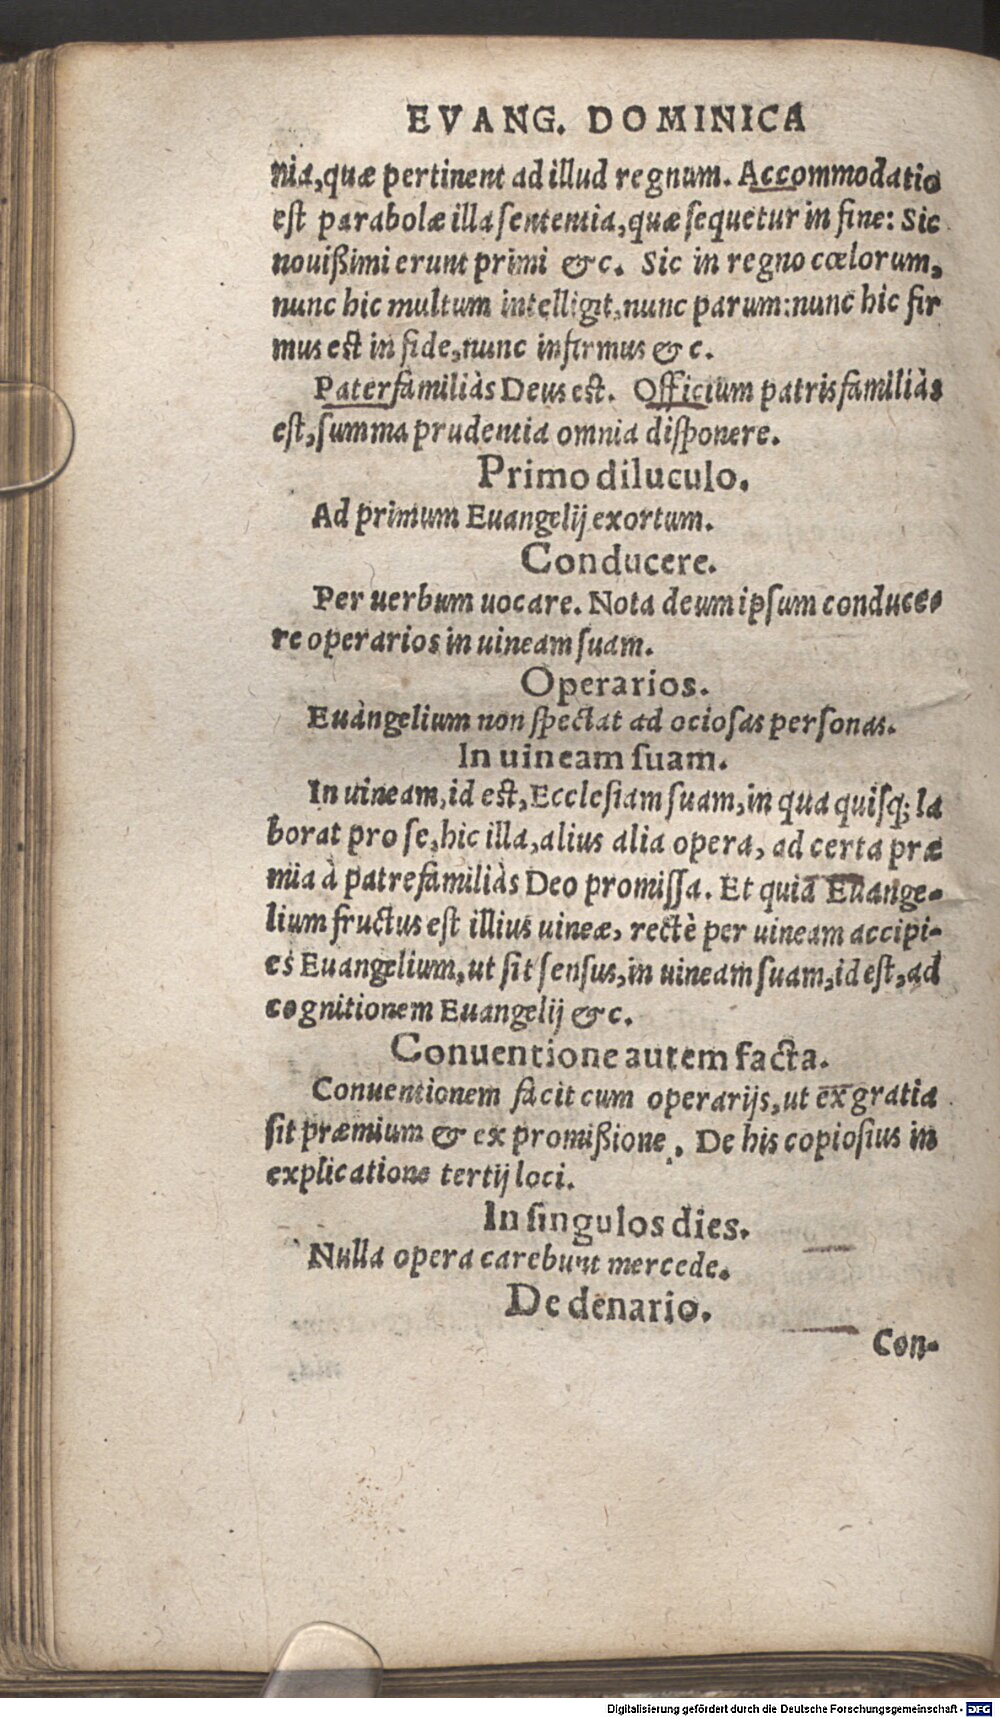 EVANG. DOMINICA
nia, quæ pertinent ad illud regnum. Accommodatio
est parabolæ illa sententia, quæ sequetur in fine: Sic
nouißimi erunt primi &c. Sic in regno cœlorum,
nunc hic multum intelligit, nunc parum: nunc hic fir
mus est in fide, nunc infirmus & c.
Paterfamiliàs Deus est. Officium patrisfamiliàs
est, summa prudentia omnia disponere.
Primo diluculo.
Ad primum Euangelij exortum.
Conducere.
Per uerbum uocare. Nota deum ipsum conduce-
re operarios in uineam suam.
Operarios.
Euangelium non spectat ad ociosas personas.
In uineam suam.
In uineam, id est, Ecclesiam suam, in qua quisq; la
borat pro se, hic illa, alius alia opera, ad certa præ
mia à patrefamiliàs Deo promissa. Et quia Euange-
lium fructus est illius uineæ, rectè per uineam accipi-
es Euangelium, ut sit sensus, in uineam suam, id est, ad
cognitionem Euangelij &c.
Conuentione autem facta.
Conuentionem facit cum operarijs, ut ex gratia
sit præmium & ex promißione. De his copiosius in
explicatione tertij loci.
In singulos dies.
Nulla opera carebunt mercede.
De denario.
Con-
Digitalisierung gefördert durch die Deutsche Forschungsgemeinschaft - DFG